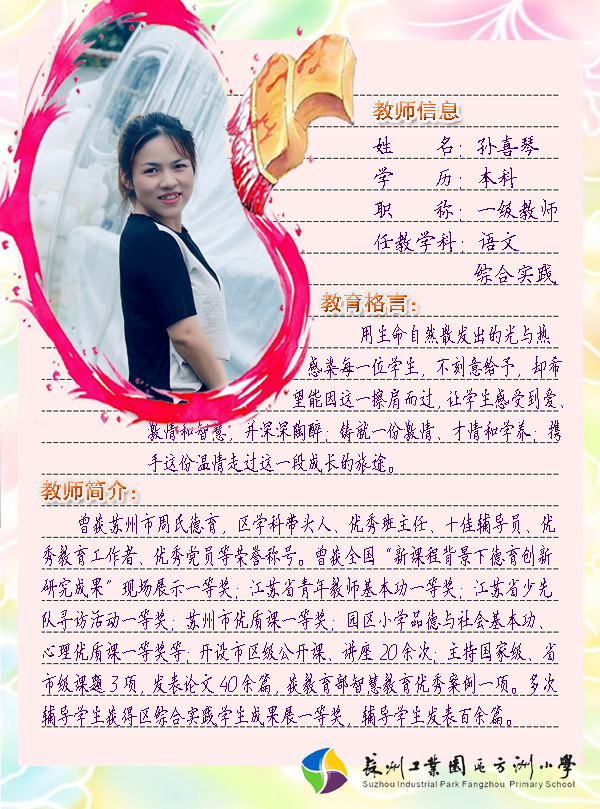 教师信息
姓 名：孙喜琴
学 历：本科
职 称：一级教师
任教学科：语文
综合实践
教育格言：
用生命自然散发出的光与热
感染每一位学生，不刻意给予，却希
望能因这一擦肩而过，让学生感受到爱、
激情和智慧，并深深陶醉；铸就一份激情、才情和学养；携
手这份温情走过这一段成长的旅途。
教师简介：
曾获苏州市周氏德育，区学科带头人、优秀班主任、十佳辅导员、优
秀教育工作者、优秀党员等荣誉称号。曾获全国“新课程背景下德育创新
研究成果”现场展示一等奖；江苏省青年教师基本功一等奖；江苏省少先
队寻访活动一等奖；苏州市优质课一等奖；园区小学品德与社会基本功、
心理优质课一等奖等；开设市区级公开课、讲座20余次；主持国家级、省
市级课题3项，发表论文40余篇，获教育部智慧教育优秀案例一项。多次
辅导学生获得区综合实践学生成果展一等奖，辅导学生发表百余篇。
苏州工业園区方洲小學
Suzhou Industrial Park Fangzhou Primary School